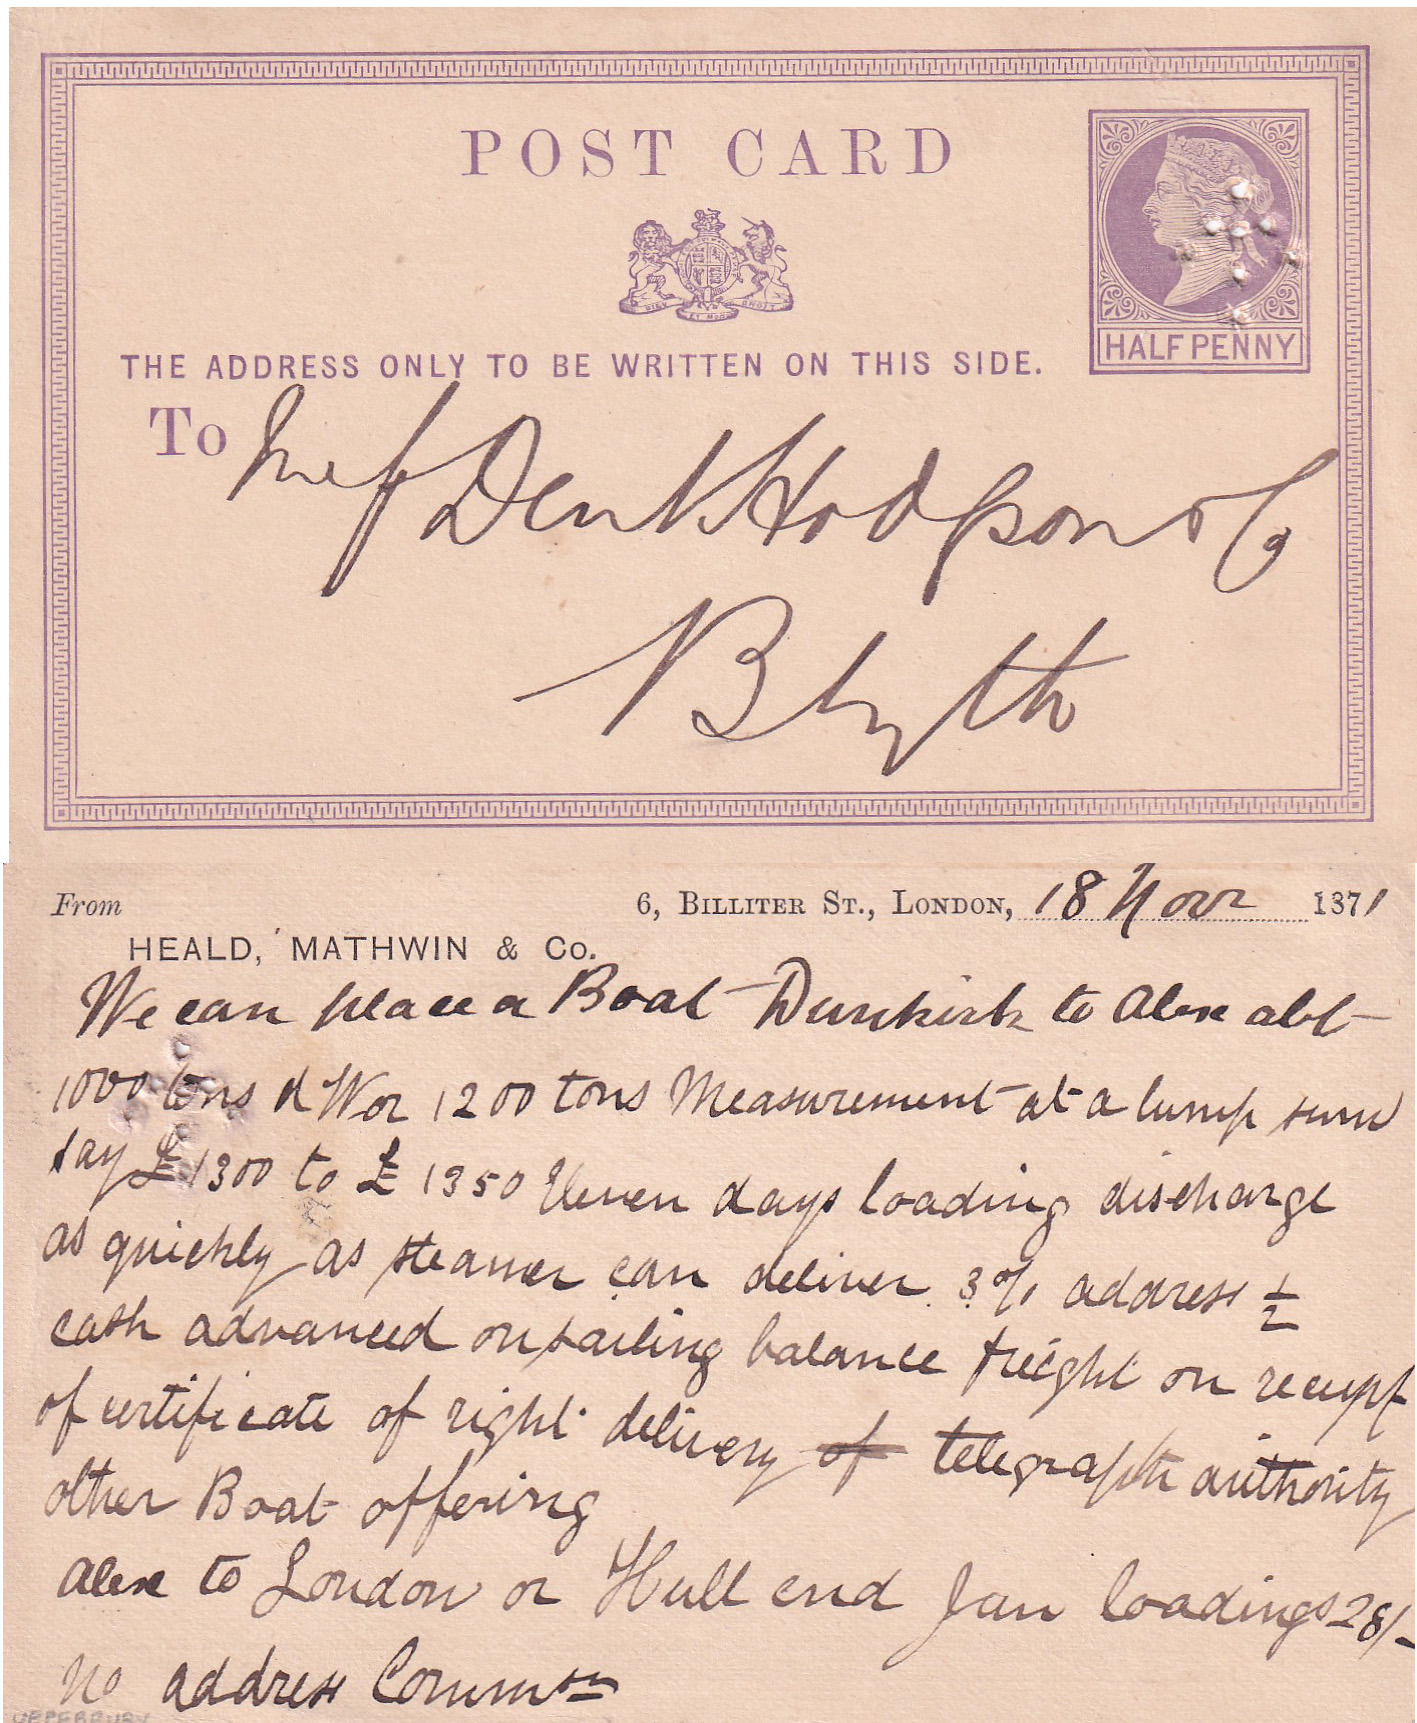 POST CARD
DIEU ET MON DROIT
HALFPENNY
THE ADDRESS ONLY TO BE WRITTEN ON THIS SIDE.
To Messrs Dent Hodgson & Co
Blyth
From 6, BILLITER ST., LONDON, 18 Novr 1871
HEALD, MATHWIN & Co.
We can place a Boat Dunkirk to Alex abt
1000 tons d W or 1200 tons Measurement at a lump sum
say £1300 to £1350 Eleven days loading discharge
as quickly as steamer can deliver 3% address ½
cash advanced on sailing balance freight on receipt
of certificate of right delivery of telegraph authority
other Boat offering
Alex to London or Hull end Jan loadings 28/-
no address Commsn